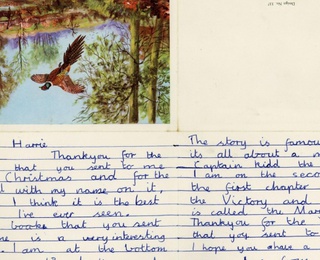 Harrie
Thankyou for the
that you sent to me
Christmas and for the
with my name on it,
I think it is the best
I've ever seen.
books that you sent
me is a very interesting
I am at the bottom
The story is famou
it's all about a m
Captain Kidd the
I am on the seco
the first chapter
the Victory and
is called the Mar
Thankyou for the
that you sent to
I hope you have a